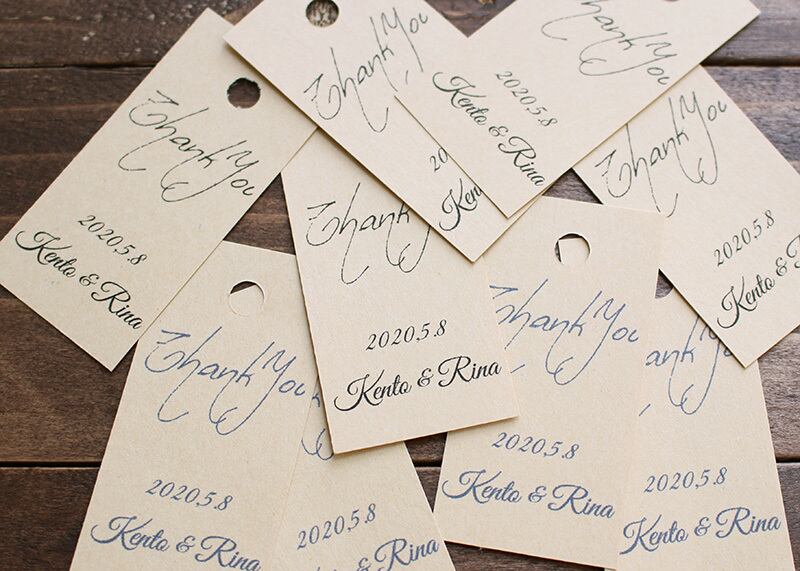 Thank You
2020.5.8
Kento & Rina
Thank You
20
Kento
Thank You
2020.5.8
Kento & Rina
Thank You
2020.5.8
Kento & Rina
Thank
2020.5.8
Kento & Rina
Thank You
2020.5.8
Kento & Rina
2020.5.8
Kento & Rina
Thank You
2020.5.8
Kento & Rina
You
2020.5.8
Kento & Rina